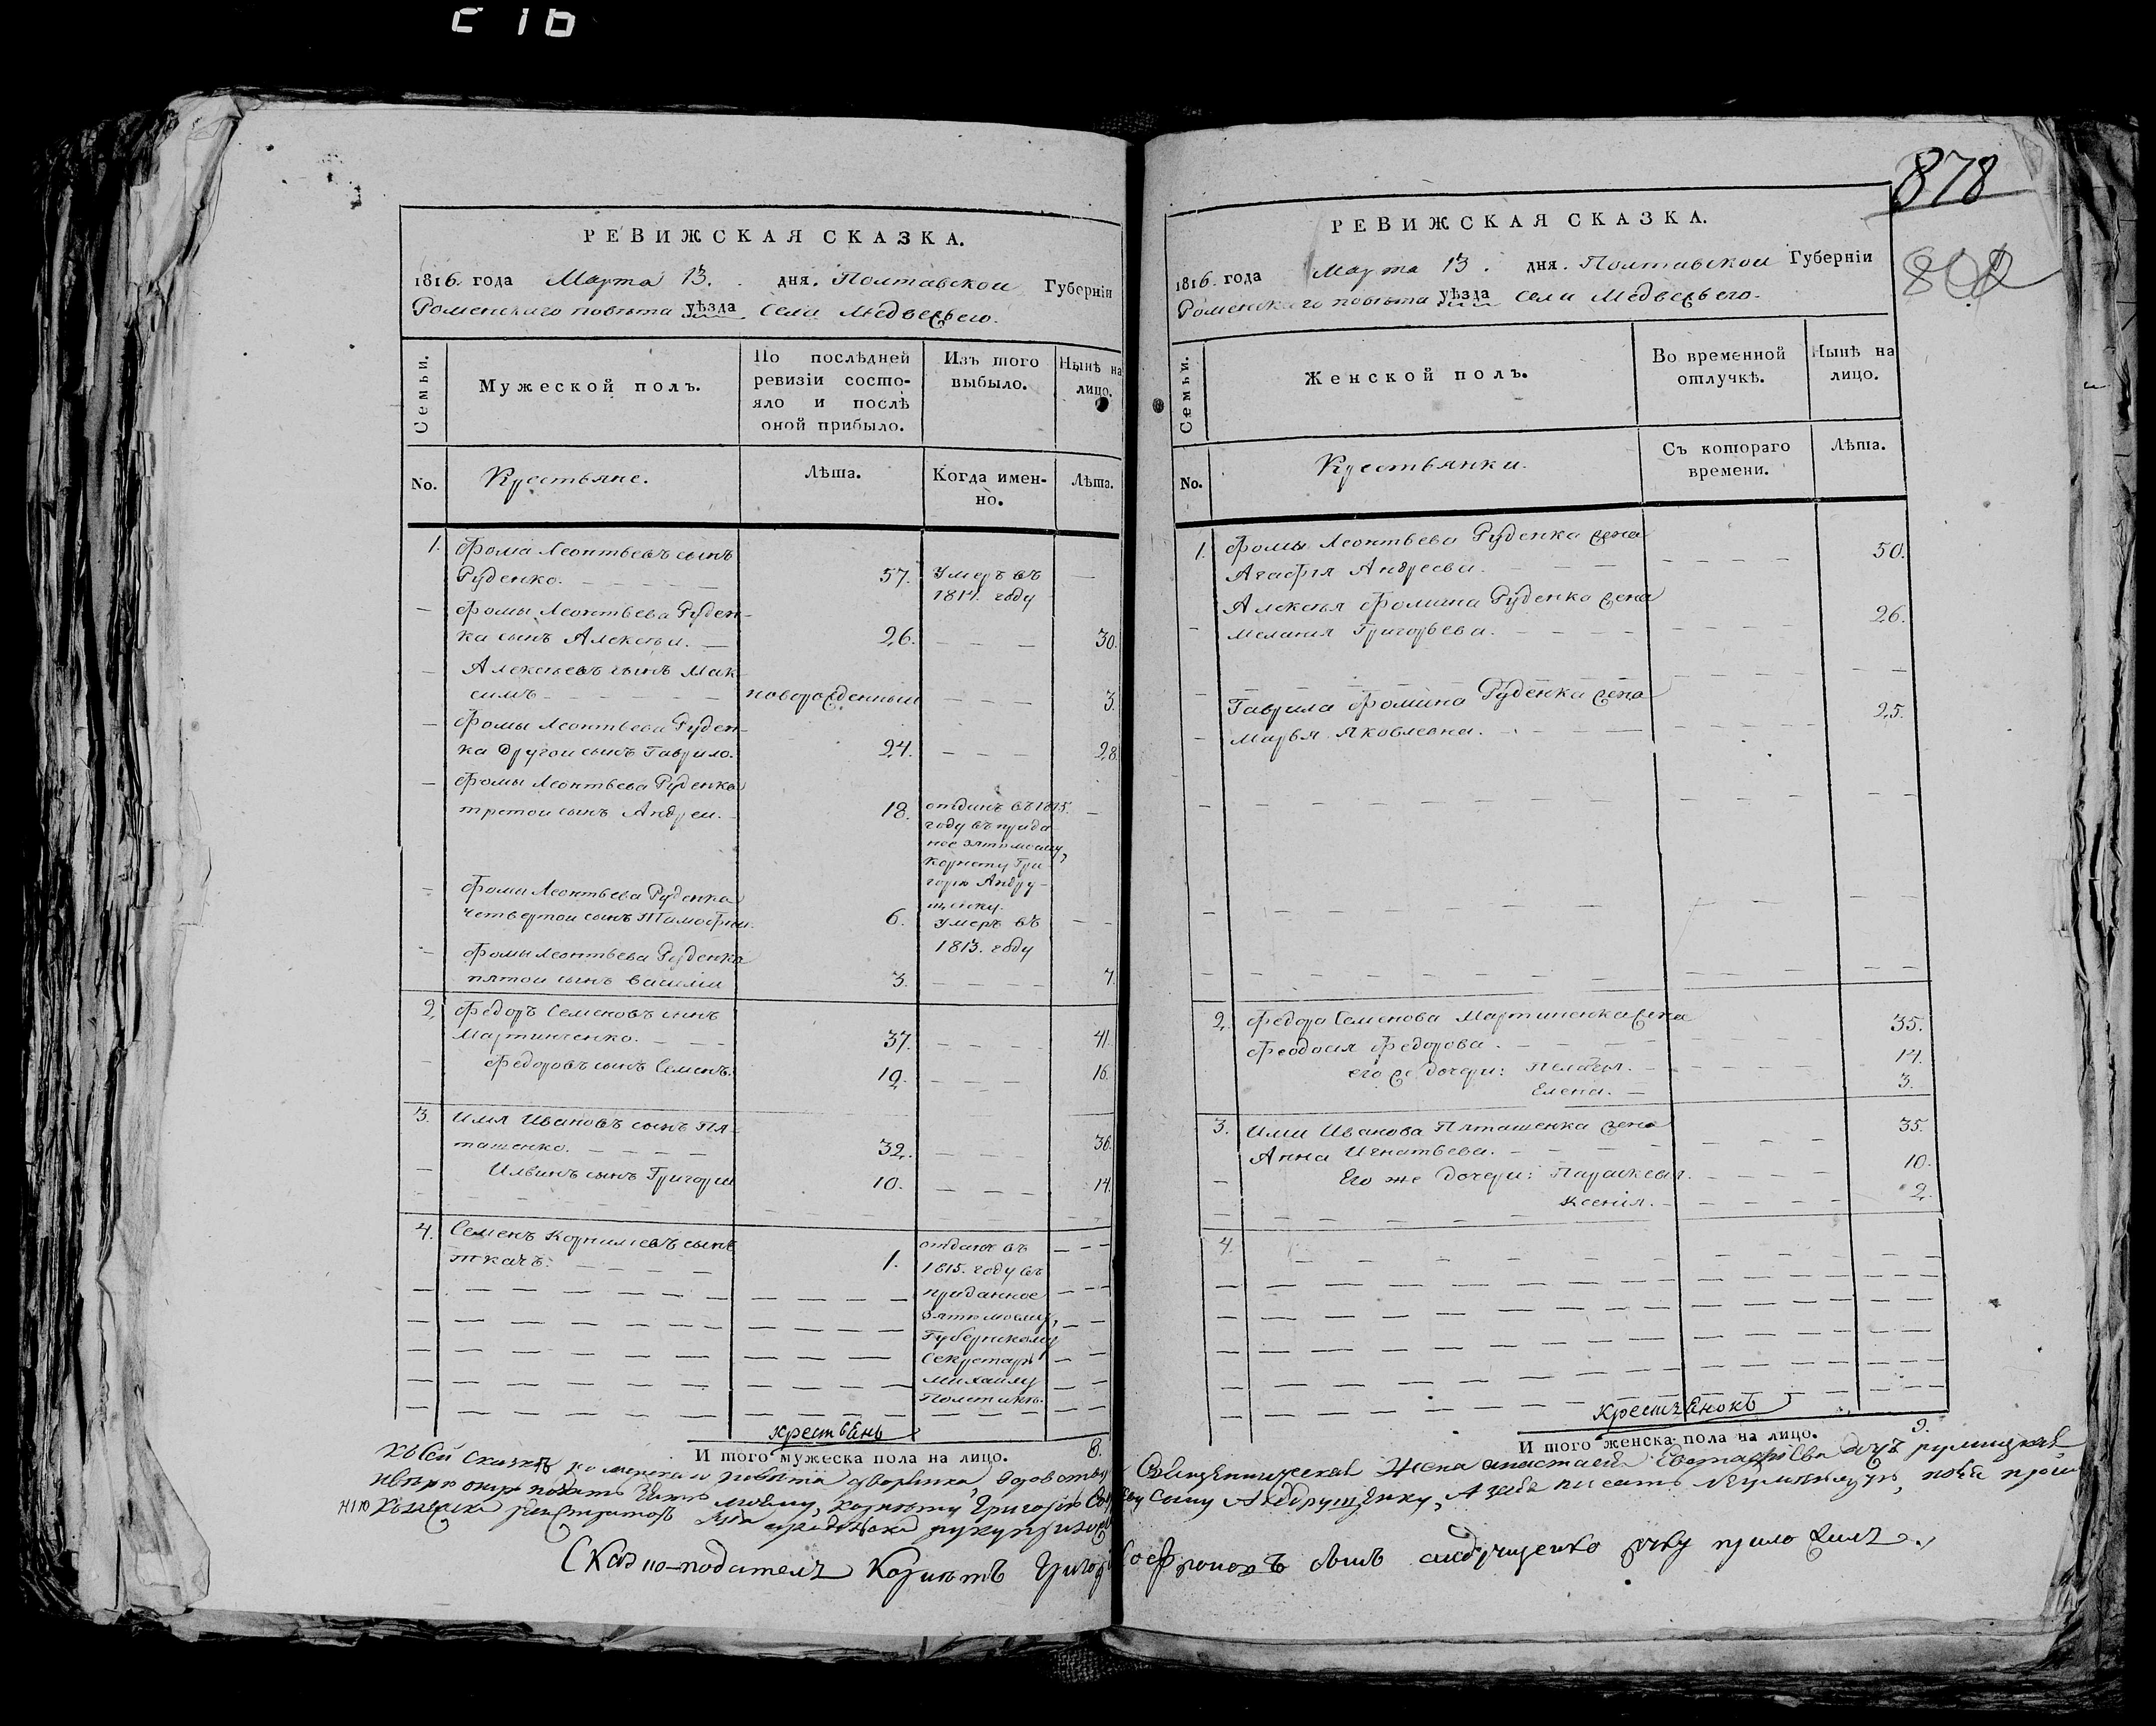 с 1 б
РЕВИЖСКАЯ СКАЗКА.
1816. года Марта 13. дня. Полтавской Губерніи
Роменскаго повѣта уѣзда Села Медвежьего.
Семьи.
Мужеской полъ.
По послѣдней ревизіи состо-
яло и послѣ
оной прибыло.
Изъ того выбыло.
Нынѣ на лицо.
No.
Крестьяне.
Лѣта.
Когда имен-
но.
Лѣта.
1. Фома Леонтьевъ сынъ
Руденко. 57. Умеръ въ
1814. году
Фомы Леонтьева Руден-
ка сынъ Алексѣй. 26. 30.
Алексѣевъ сынъ Мак-
симъ новорожденный 3.
Фомы Леонтьева Руден-
ка другой сынъ Гаврило. 24. 28.
Фомы Леонтьева Руденка
третой сынъ Андрей. 18. отданъ въ 1815.
году въ прида
ное зятю моему,
корнету Гри-
горю Андру-
щенку.
Фомы Леонтьева Руденка
четвертой сынъ Тимофѣй. 6. Умеръ въ
1813. году
Фомы Леонтьева Руденка
пятой сынъ Василій 3. 7.
2. Федоръ Семеновъ сынъ
Мартиненко. 37. 41.
Федоровъ сынъ Семенъ. 12. 16.
3. Илля Ивановъ сынъ Пя-
ташенко. 32. 36.
Ильинъ сынъ Григорій 10. 14.
4. Семенъ Корнилиевъ сынъ
Ткачъ. 1. отданъ въ
1815. году въ
приданное
Зятю моему,
Губернскому
Секретарю
Михайлу
Полетикѣ.
крестьянъ
И того мужеска пола на лицо. 8.
878
РЕВИЖСКАЯ СКАЗКА.
1816. года Марта 13. дня. Полтавской Губерніи
Роменскаго повѣта уѣзда села Медвежьего.
Семьи.
Женской полъ.
Во временной
отлучкѣ.
Нынѣ на
лицо.
No.
Крестьянки.
Съ котораго
времени.
Лѣта.
1. Фомы Леонтьева Руденка жена
Агафія Андреева. 50.
Алексѣя Фомина Руденко жена
Меланія Григорьева. 26.
Гаврила Фомина Руденка жена
Марья Яковлевна. 25.
2. Федора Семенова Мартиненка жена
Феодосія Федорова. 35.
его же дочери: Пелагѣя. 14.
Елена. 3.
3. Илли Иванова Пяташенка жена
Анна Игнатьева. 35.
Его же дочери: Параскевія. 10.
Ксенія. 2.
4.
крестьянокъ
И того женска пола на лицо. 9.
Къ сей сказкѣ роменскаго повѣта дворянка, вдовствующая Священническая Жена Анастасія Евстафіева дочъ
подать Зятю моему, корнету Григорію Андрущенку, А за
регистраторъ руку приложилъ
Сказко-податель Корнетъ Григорій Софроновъ сынъ Андрущенко руку приложилъ.